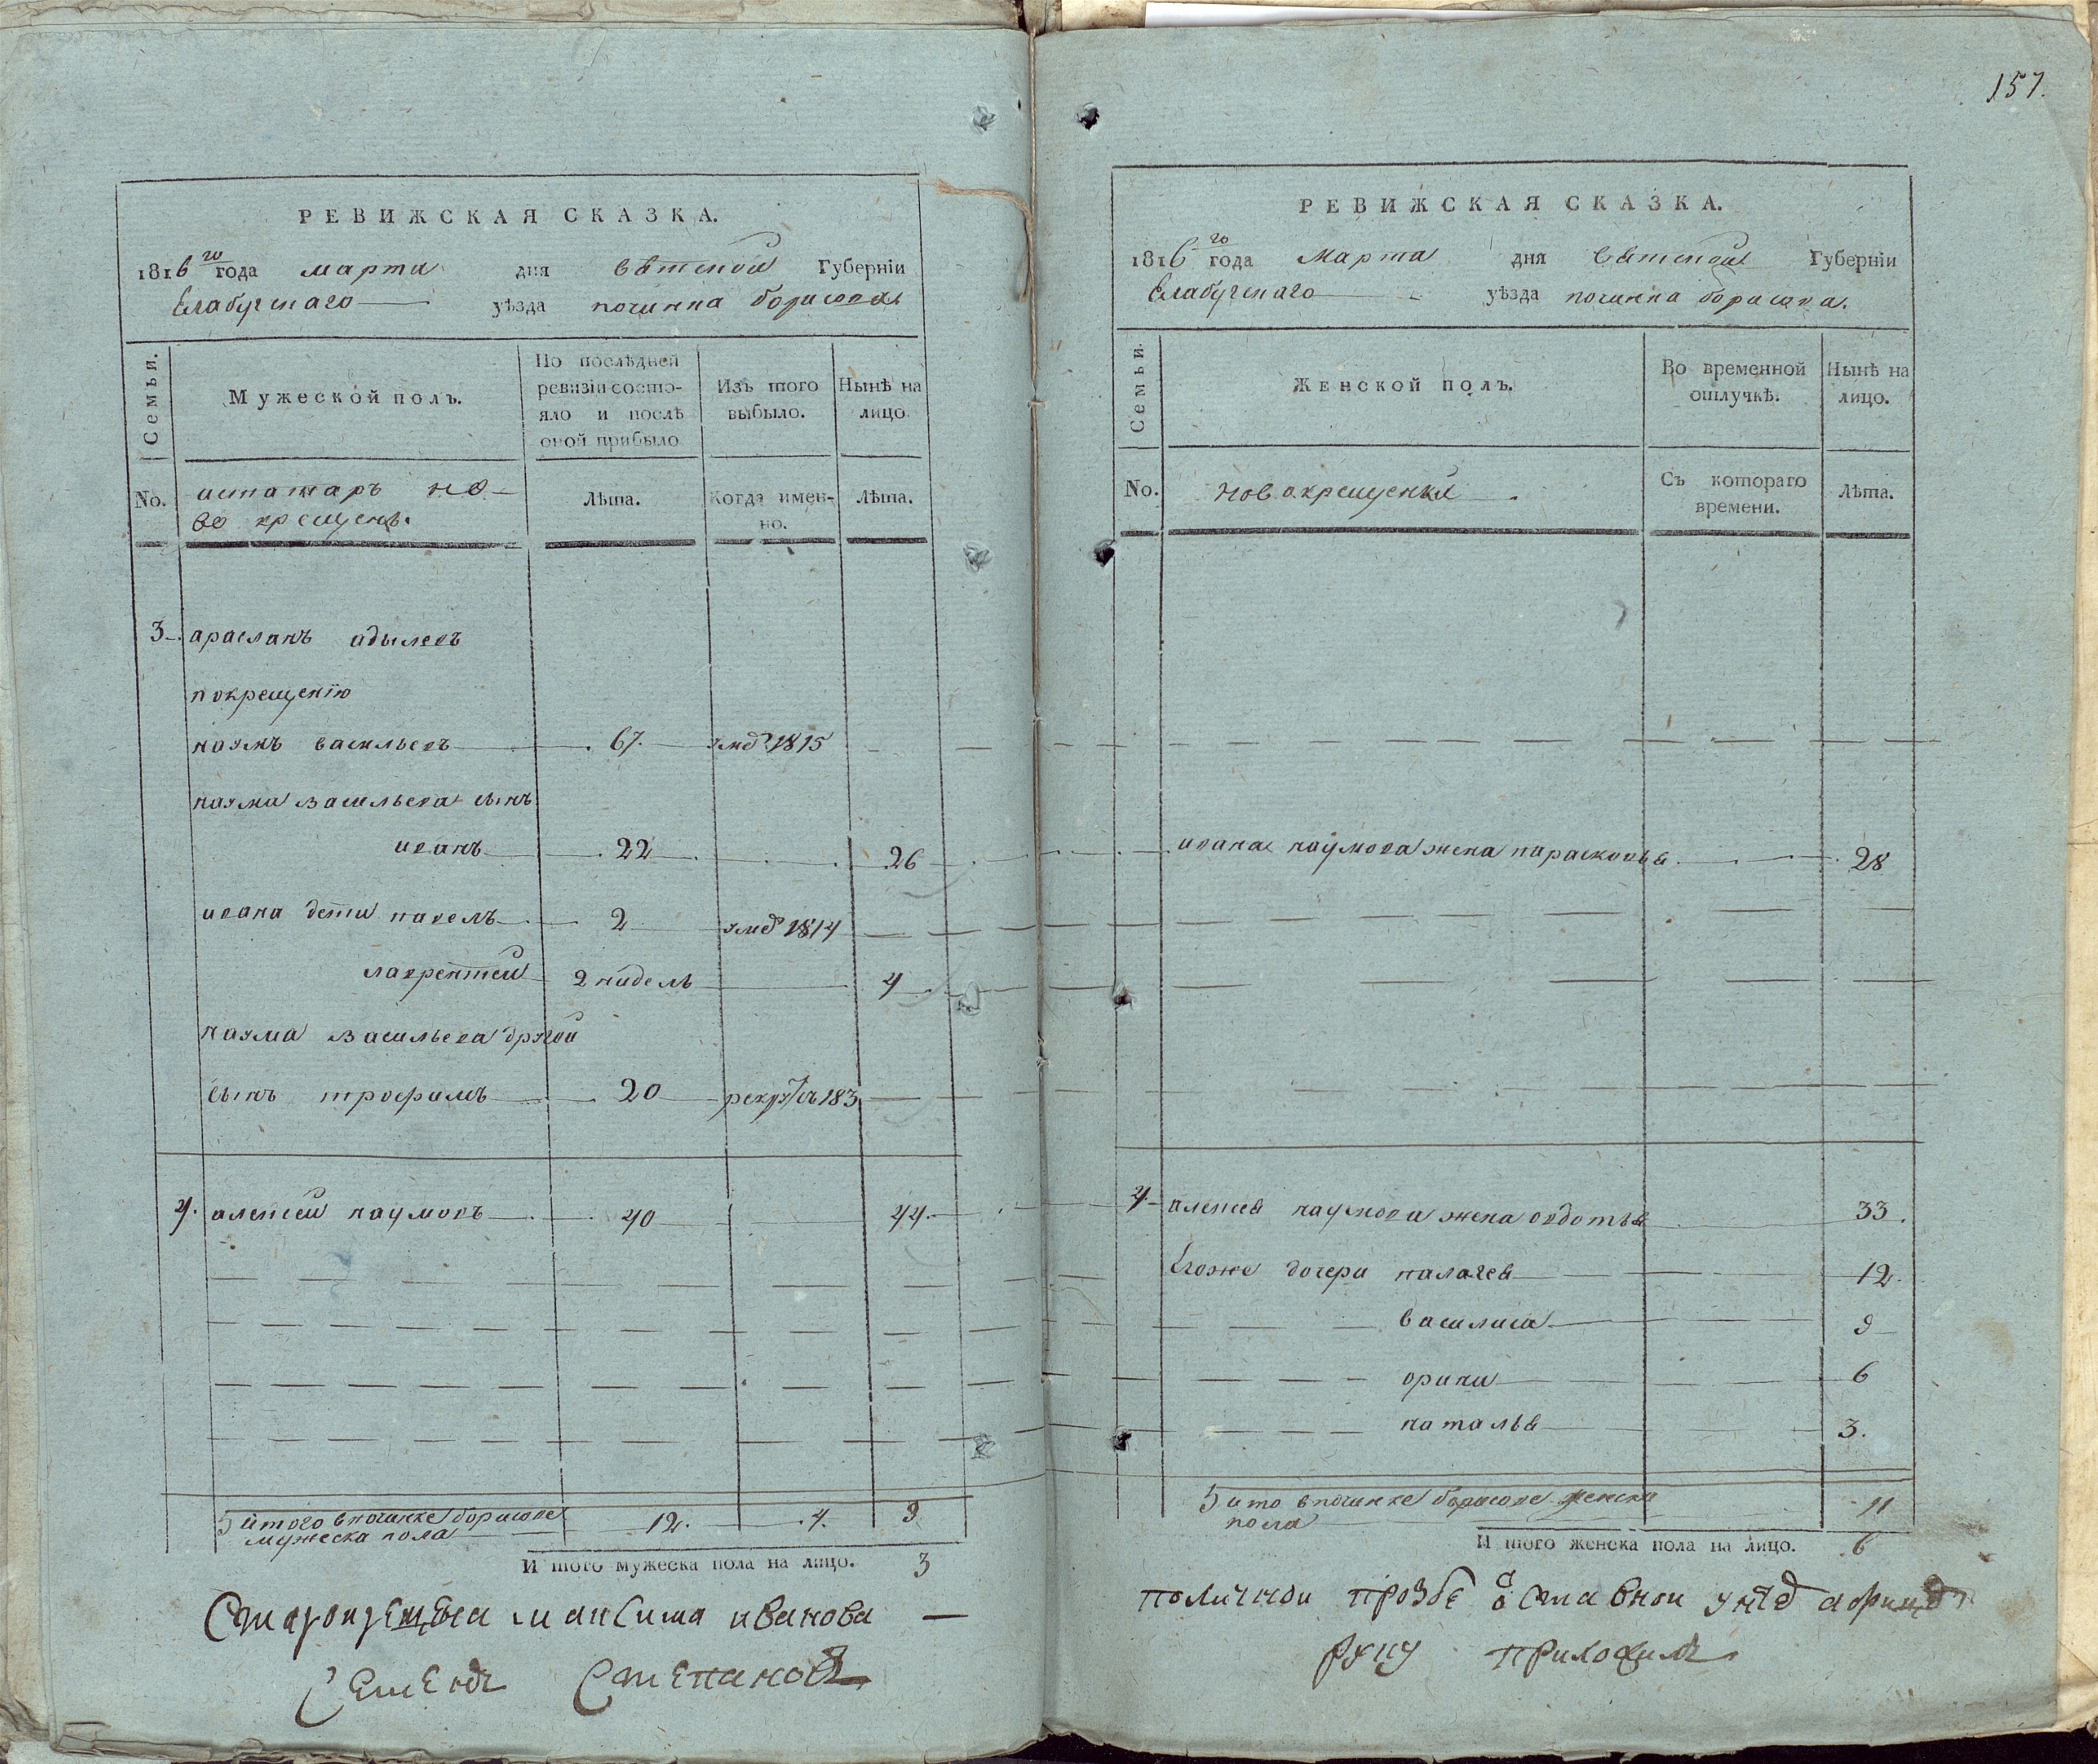 РЕВИЖСКАЯ СКАЗКА.
1816 го года марта дня вятской Губернїи
Елабугскаго уѣзда починка борисова
Семьи.
Мужеской полъ.
По послѣдней ревизіи состо-
яло и послѣ
оной прибыло
Изъ того
выбыло.
Нынѣ на
лицо
No.
истатаръ но-
во крещенъ.
Лѣта.
Когда имен-
но.
Лѣта.
3 арасланъ адылевъ
покрещенїю
наумъ васильевъ 67. умеръ 1815
наума васильева сынъ
иванъ 22 26
ивана дети павелъ 2 1814
лаврентей 2 нидель 4
наума васильева другой
сынъ трофимъ 20 183
4. алексей наумовъ 40 44.
итого впочинке борисове
мужеска пола 12. 4. 3
И того мужеска пола на лицо. 3
максима иванова
Семенъ Степановъ
157.
РЕВИЖСКАЯ СКАЗКА.
1816 го года Марта дня Вятской Губернїи
Елабугскаго уѣзда починка борисова.
Семьи.
Женской полъ.
Во временной
отлучкѣ.
Нынѣ на
лицо.
No.
новокрещенъя
Съ котораго
времени.
Лѣта.
ивана наумова жена парасковья 28
4 алексея наумова жена овдотья 33.
Егоже дочери палагея 12.
василиса 9
орина 6
наталья 3.
ито впочинке борисове женска
пола 11
И того женска пола на лицо. 6
поличнои прозбе
руку приложилъ